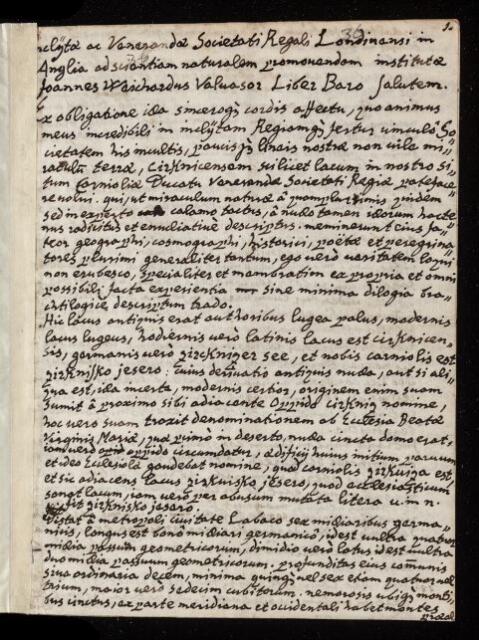 1.
36
nclytæ ac Venerandæ Societati Regali Londinensi in
Anglia ad scientiam naturalem promovendam institutæ
Joannes Waichardus Valvasor Liber Baro Salutem.
Ex obligatione idea sincerogz cordis affectu, quo animus
meus incredibili in inclytam Regiamgz fertur vinculo So„
cietatem his incultis, paucisgz lineis nostræ non vile mi„
raculum terræ, Cirknicensem scilicet lacum in nostro si„
tum Carnioliæ Ducatu Venerandæ Societati Regiæ pateface„
re volui. qui, ut miraculum naturæ à quidem
sed inexperto calamo tactus, à nullo tamen eorum hacte
nus radicitus et enucliative descriptus. meminerunt eius fa„
teor geographi, cosmographi, historici, poëtæ et peregrina„
tores plurimi generaliter tantum, ego verò veritatem loqui
non erubesco, specialiter et membratim ex propria et omni
possibili facta experientia sine minima dilogia bra„
chilogicè descriptum trado.
Hic lacus antiquis erat authoribus lugea palus, modernis
lacus lugeus, hodiernis verò latinis lacus est cirknicen„
sis, germanis verò zirckhnizer see, et nobis carniolis est
zirknisko jesero: cuius derivatio antiquis nulla, aut si ali„
qua est, idea incerta, modernis certior, originem enim suam
sumit à proximo sibi adiacente Oppido Cirkniz nomine,
hoc verò suam traxit denominationem ab Ecclesia Beatæ
Virginis Mariæ, quæ primò in deserto, nulla cincta domo erat,
iam verò oppido circumdatur, ædificij huius initum parvum
et ideo Ecclesiola gaudebat nomine, quod carniolis zirkuiza est,
et sic adiacens lacus zirkuisko jesero, quod ecclesiasticum
sonat lacum, iam verò per abusum mutata litera u in n.
fit zirknisko jesero.
Distat à metropoli Civitate Labaco sex milliaribus germa„
nicis, longus est bono milliari germanico, idest ultra quatuor
millia passuum geometricorum, dimidio verò latus idest ultra
duo millia passuum geometricorum. profunditas eius com̄unis
sive ordinaria decem, minima quinqz vel sex etiam quatuor vel
trium, maior verò sedecim cubitorum. nemorosis ubiqz monti„
bus cinctus, ex parte meridiana et occidentali habet montes